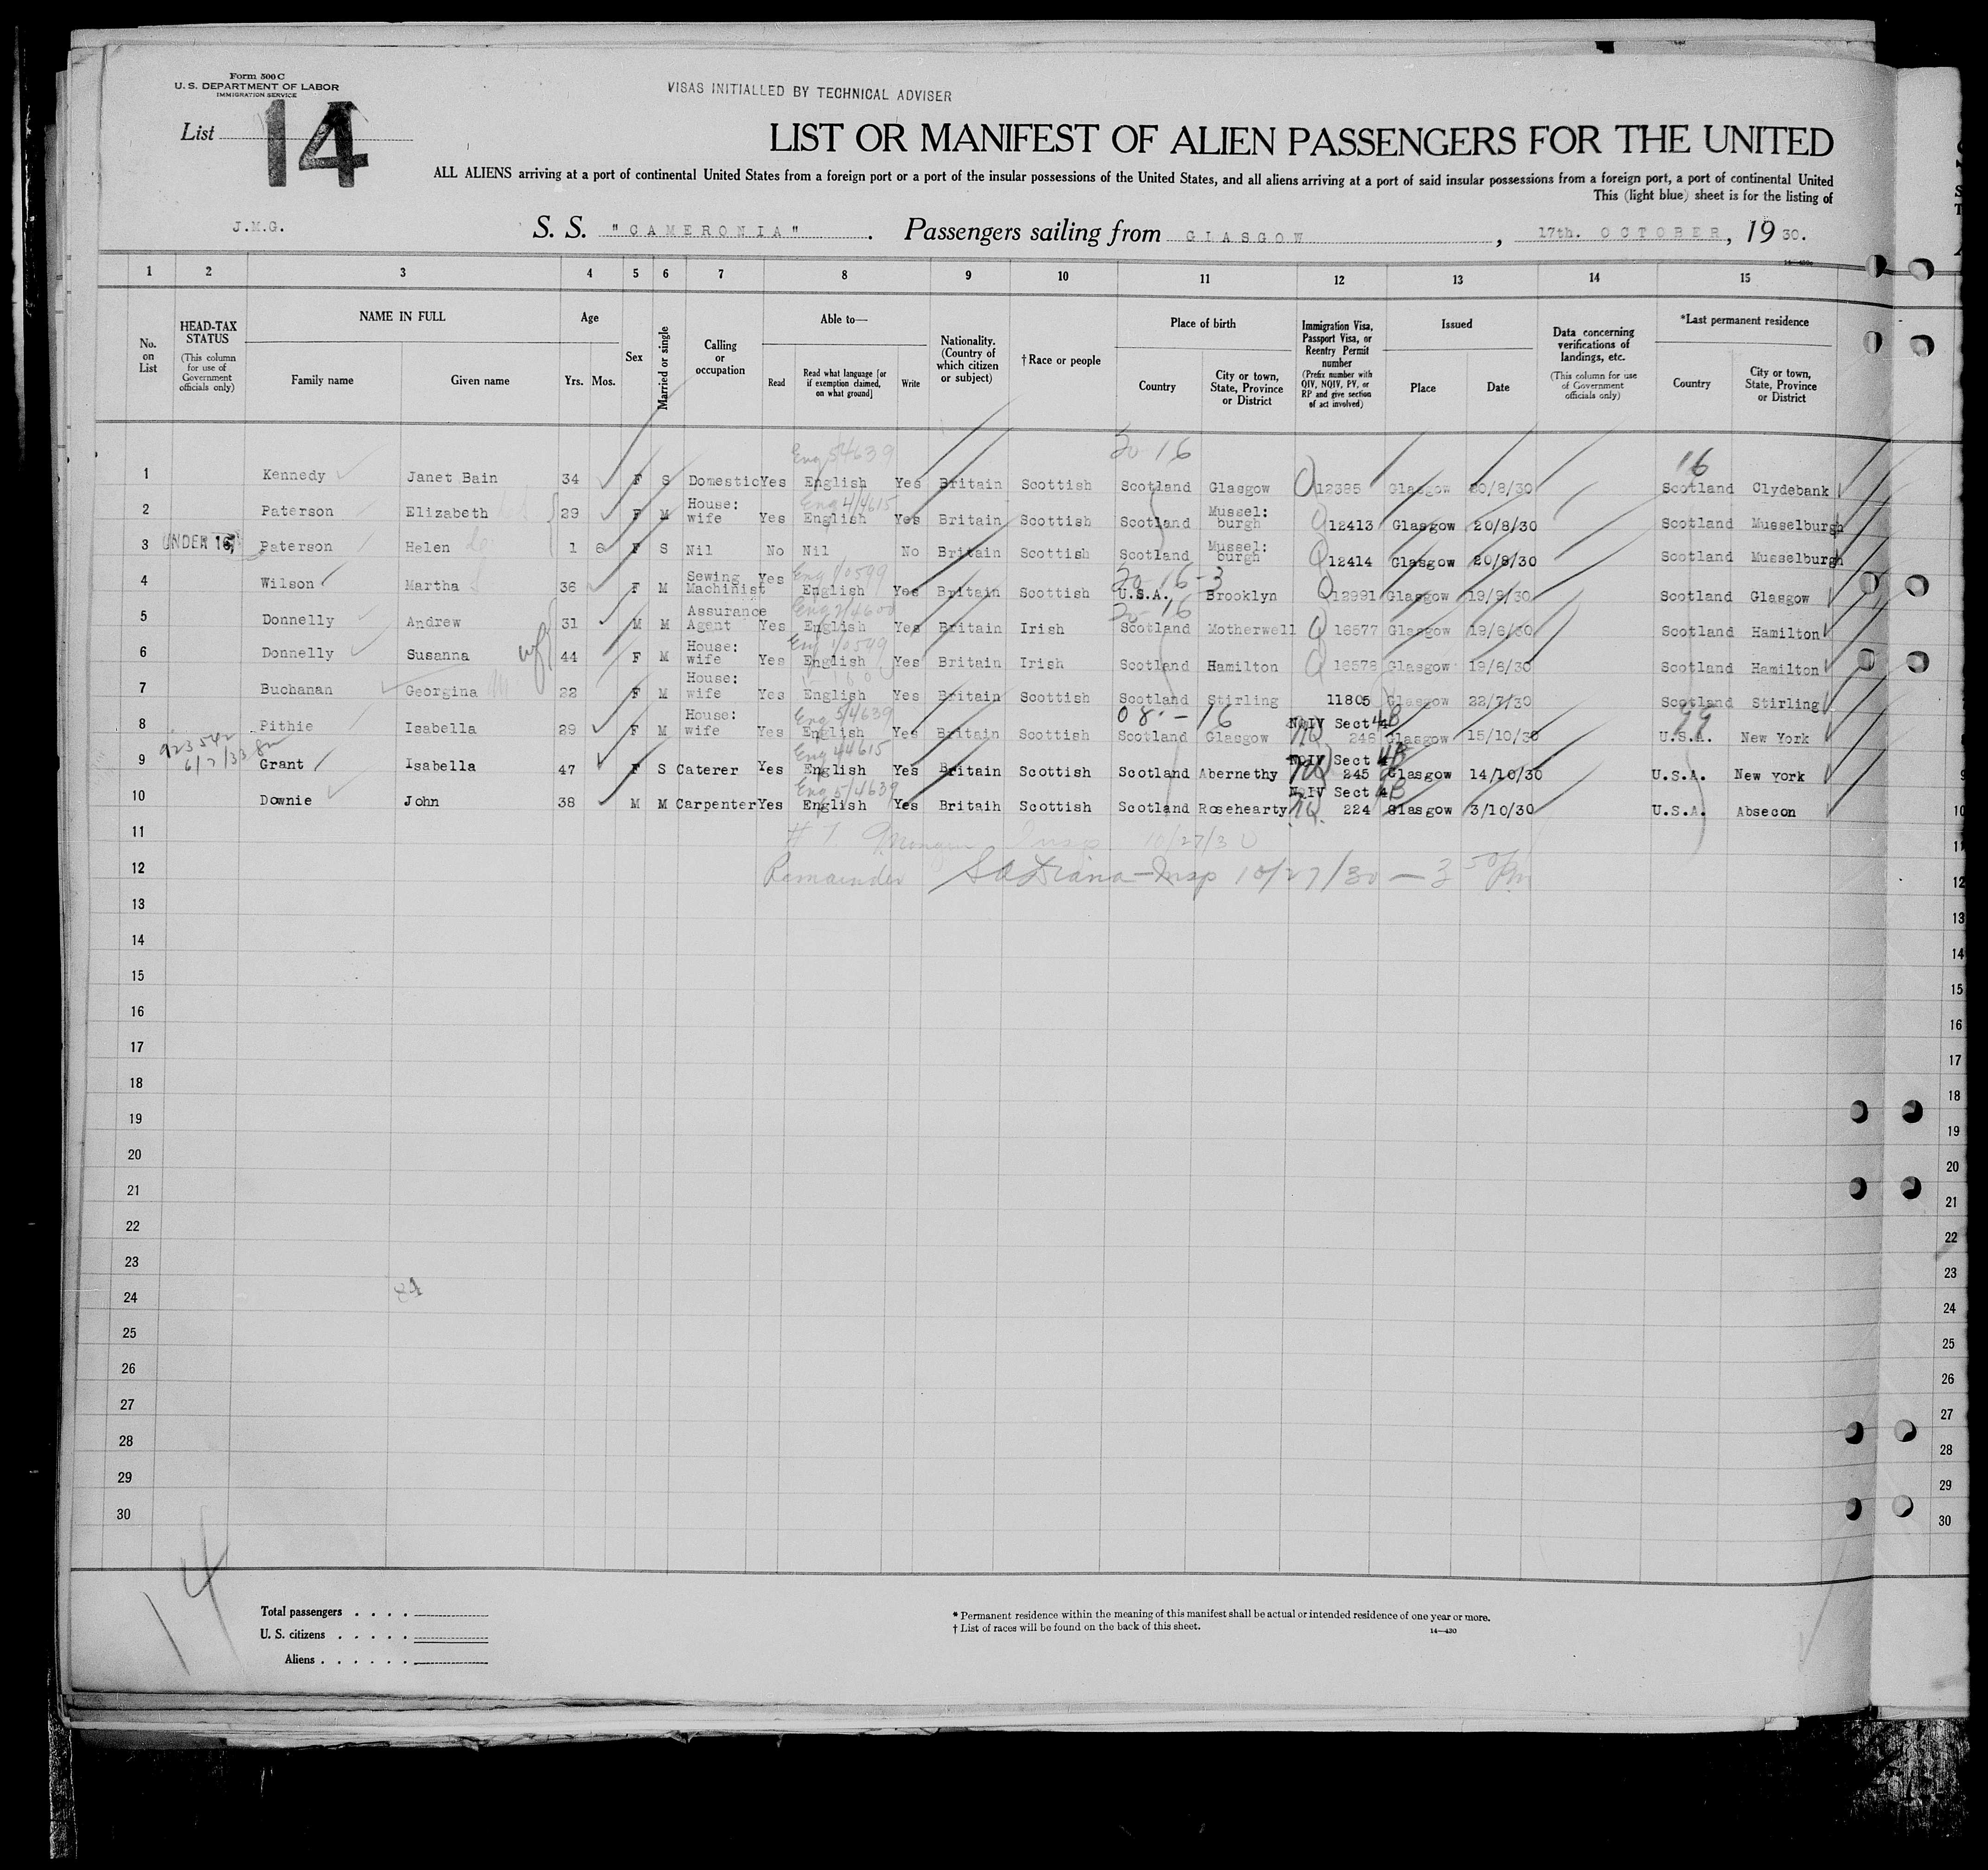 Form 500 C
U. S. DEPARTMENT OF LABOR
IMMIGRATION SERVICE
VISAS INITIALLED BY TECHNICAL ADVISER
List 14
LIST OR MANIFEST OF ALIEN PASSENGERS FOR THE UNITED
ALL ALIENS arriving at a port of continental United States from a foreign port or a port of the insular possessions of the United States, and all aliens arriving at a port of said insular possessions from a foreign port, a port of continental United
This (light blue) sheet is for the listing of
J.M.G.
S. S. "CAMERONIA". Passengers sailing from GLASGOW, 17th. OCTOBER, 19 30.
1 2 3 4 5 6 7 8 9 10 11 12 13 14 15
No. on List
HEAD-TAX STATUS
(This column for use of Government officials only)
NAME IN FULL
Family name Given name
Age
Yrs. Mos.
Sex
Married or single
Calling or occupation
Able to—
Read
Read what language [or if exemption claimed, on what ground]
Write
Nationality. (Country of which citizen or subject)
†Race or people
Place of birth
Country
City or town, State, Province or District
Immigration Visa, Passport Visa, or Reentry Permit number
(Prefix number with QIV, NQIV, PV, or RP and give section of act involved)
Issued
Place Date
Data concerning verifications of landings, etc.
(This column for use of Government officials only)
*Last permanent residence
Country
City or town, State, Province or District
Eng 5/4639 20 16 16
1 Kennedy Janet Bain 34 F S Domestic Yes English Yes Britain Scottish Scotland Glasgow Q 12385 Glasgow 20/8/30 Scotland Clydebank
Eng 4/4615
2 Paterson Elizabeth 29 F M House: wife Yes English Yes Britain Scottish Scotland Mussel: burgh Q 12413 Glasgow 20/8/30 Scotland Musselburgh
3 UNDER 16 Paterson Helen 1 6 F S Nil No Nil No Britain Scottish Scotland Mussel: burgh Q 12414 Glasgow 20/8/30 Scotland Musselburgh
Eng 10599 20 16-3
4 Wilson Martha 36 F M Sewing Machinist Yes English Yes Britain Scottish U.S.A. Brooklyn Q 12991 Glasgow 19/9/30 Scotland Glasgow
Eng 2/4600 20 16
5 Donnelly Andrew 31 M M Assurance Agent Yes English Yes Britain Irish Scotland Motherwell Q 16577 Glasgow 19/6/30 Scotland Hamilton
Eng 10599
6 Donnelly Susanna wf 44 F M House: wife Yes English Yes Britain Irish Scotland Hamilton Q 16578 Glasgow 19/6/30 Scotland Hamilton
7 Buchanan Georgina 22 F M House: wife Yes English Yes Britain Scottish Scotland Stirling 11805 Glasgow 22/7/30 Scotland Stirling
Eng 5/4639 08 - 16 99
8 Pithie Isabella 29 F M House: wife Yes English Yes Britain Scottish Scotland Glasgow NQIV Sect 4B 246 Glasgow 15/10/30 U.S.A. New York
6/7/33
Eng 44615
9 Grant Isabella 47 F S Caterer Yes English Yes Britain Scottish Scotland Abernethy NQIV Sect 4B 245 Glasgow 14/10/30 U.S.A. New York
Eng 5/4639
10 Downie John 38 M M Carpenter Yes English Yes Britaih Scottish Scotland Rosehearty NQIV Sect 4B 224 Glasgow 3/10/30 U.S.A. Absecon
11 # 7 Insp 10/27/30
12 Remainder Insp 10/27/30 — 3 50 Pm
13
14
15
16
17
18
19
20
21
22
23
24
25
26
27
28
29
30
14
Total passengers
U. S. citizens
Aliens
* Permanent residence within the meaning of this manifest shall be actual or intended residence of one year or more.
† List of races will be found on the back of this sheet.
14—430